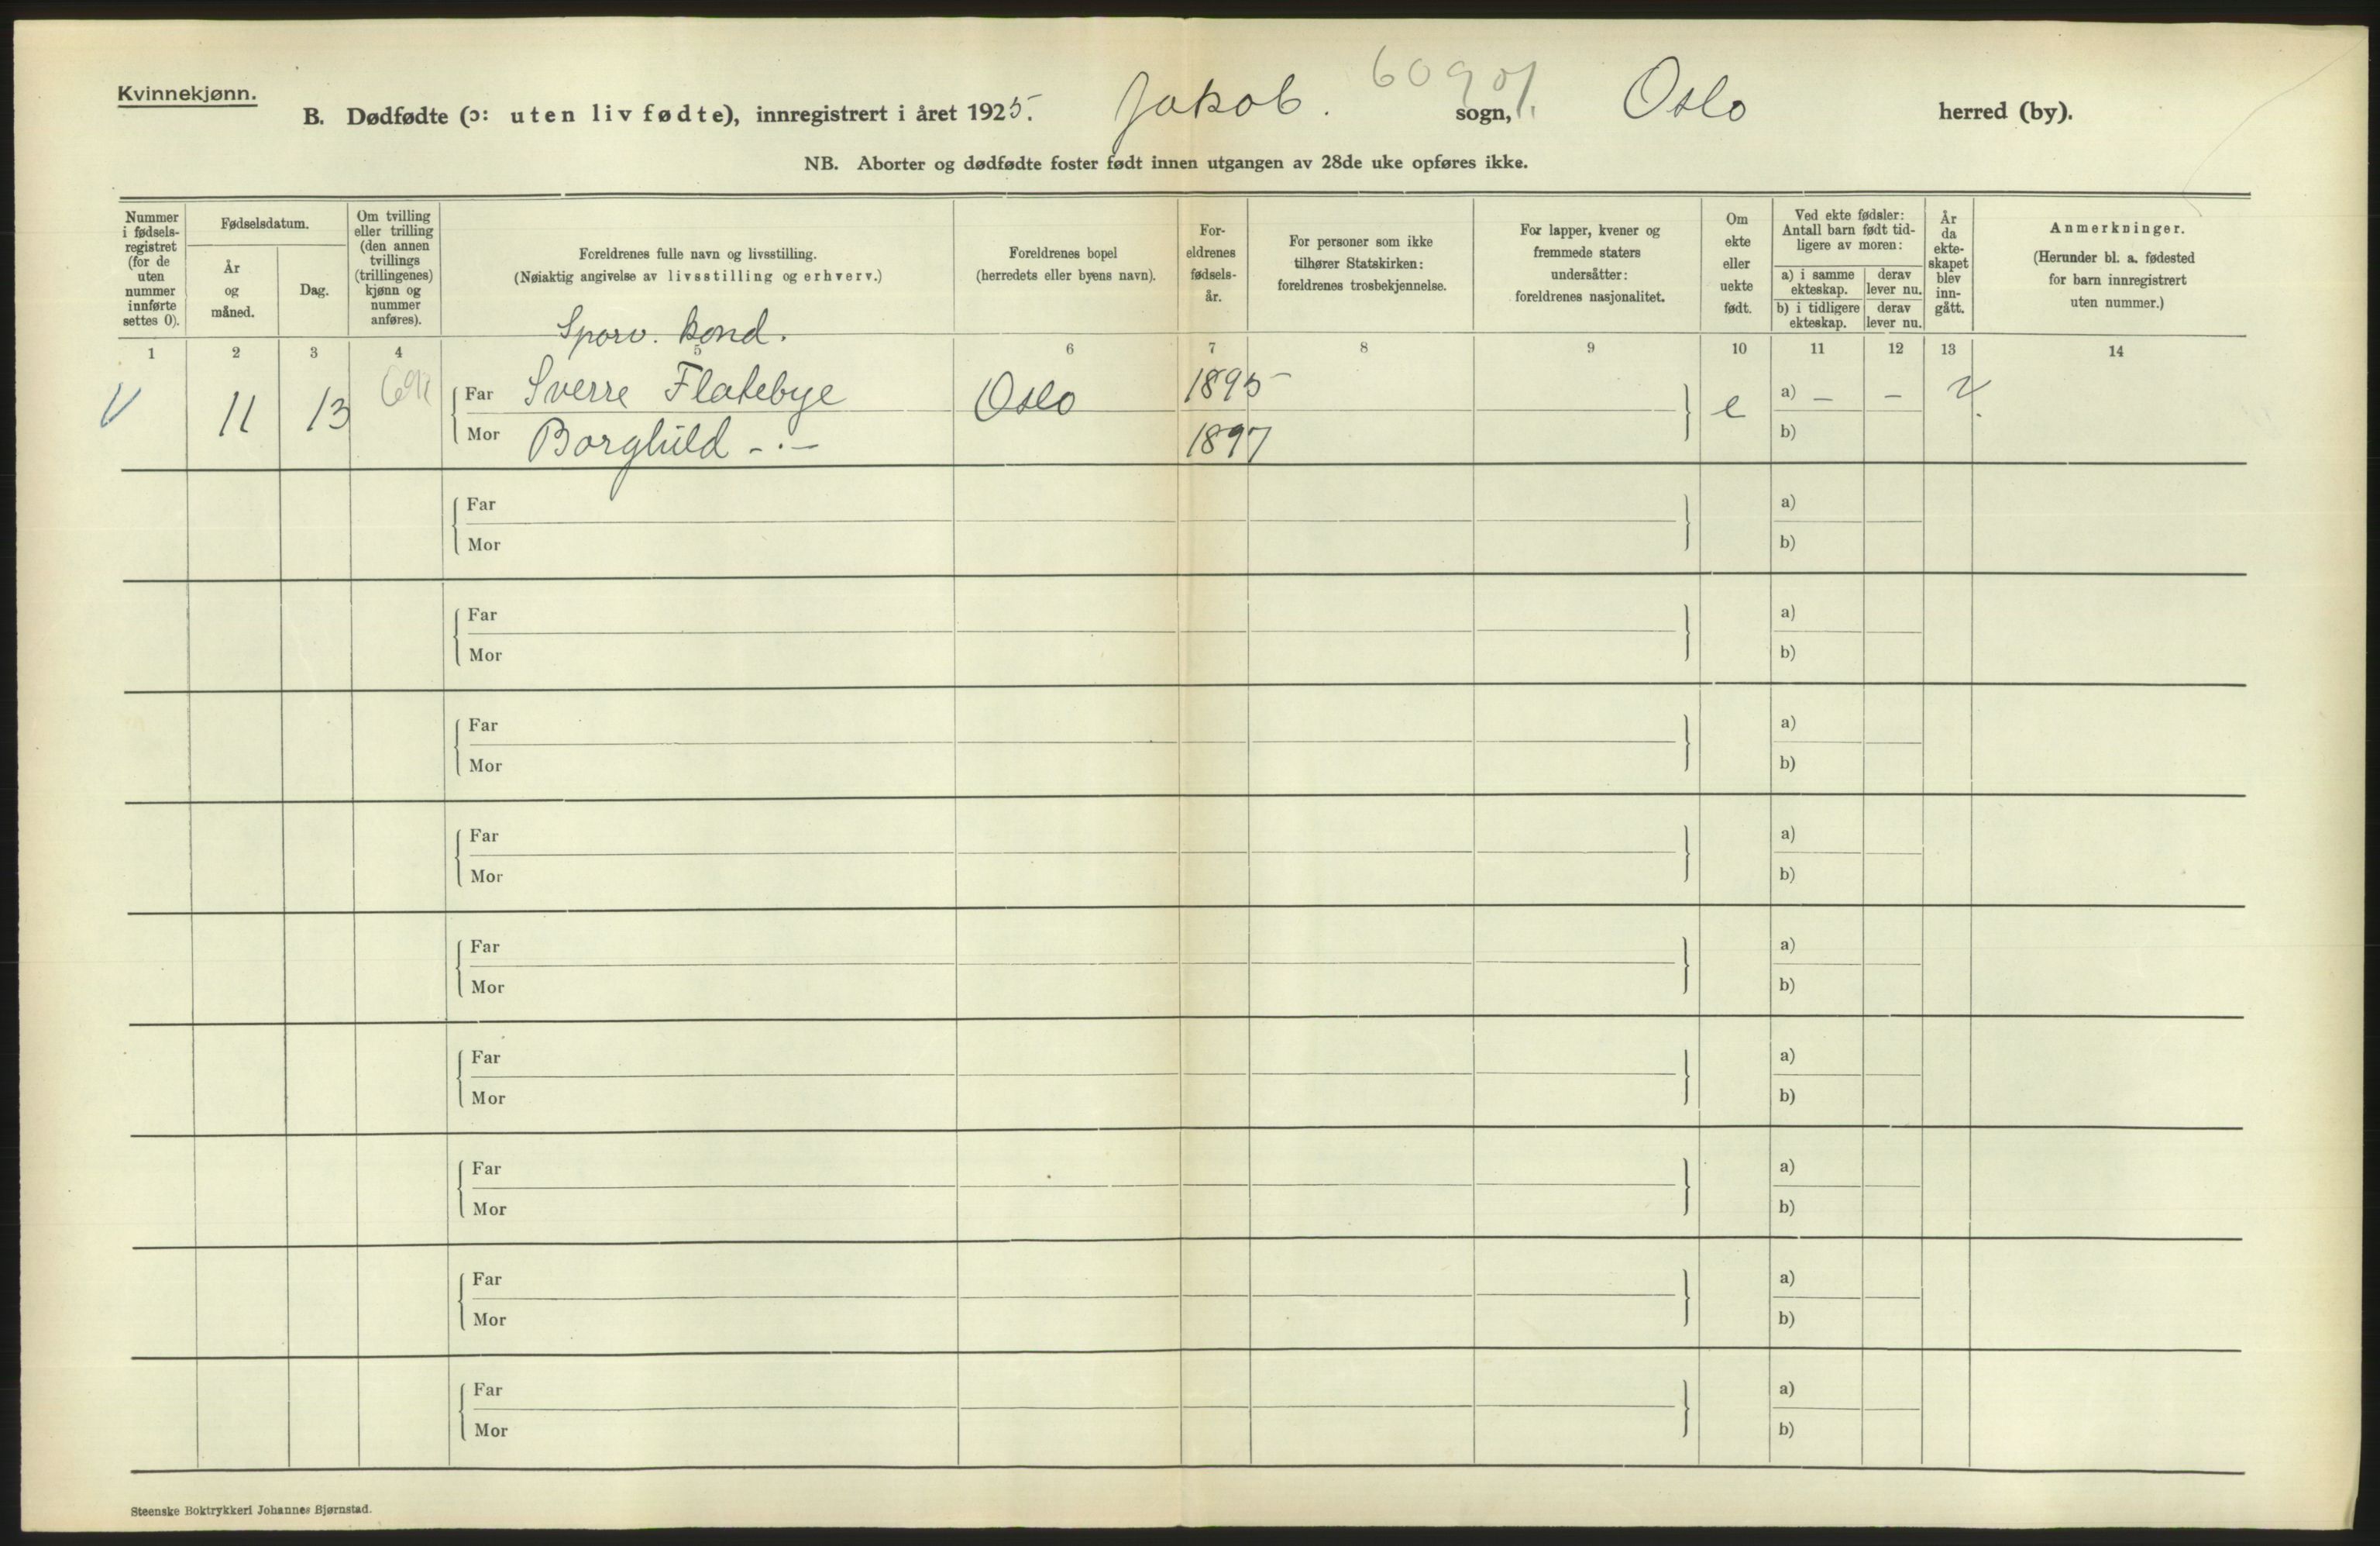 Kvinnekjønn.
6090
B. Dødfødte (ɔ: uten liv fødte), innregistrert i året 1925. Jakob. sogn, Oslo herred (by).
NB. Aborter og dødfødte foster født innen utgangen av 28de uke opføres ikke.
Nummer
i fødsels-
registret
(for de
uten
nummer
innførte
settes 0).
Fødselsdatum.
År
og
måned.
Dag.
Om tvilling
eller trilling
(den annen
tvillings
(trillingenes)
kjønn og
nummer
anføres).
Foreldrenes fulle navn og livsstilling.
(Nøiaktig angivelse av livsstilling og erhverv.)
Foreldrenes bopel
(herredets eller byens navn).
For-
eldrenes
fødsels-
år.
For personer som ikke
tilhører Statskirken:
foreldrenes trosbekjennelse.
For lapper, kvener og
fremmede staters
undersåtter:
foreldrenes nasjonalitet.
Om
ekte
eller
uekte
født.
Ved ekte fødsler:
Antall barn født tid-
ligere av moren:
a) i samme
ekteskap.
derav
lever nu.
b) i tidligere
ekteskap.
derav
lever nu.
År
da
ekte-
skapet
blev
inn-
gått.
Anmerkninger.
(Herunder bl. a. fødested
for barn innregistrert
uten nummer.)
1 2 3 4 5 6 7 8 9 10 11 12 13 14
Sporv. kond.
11 13 Far Sverre Flatebye Oslo 1895 e a) – –
Mor Borghild -.- 1897 b)
Far a)
Mor b)
Far a)
Mor b)
Far a)
Mor b)
Far a)
Mor b)
Far a)
Mor b)
Far a)
Mor b)
Far a)
Mor b)
Far a)
Mor b)
Far a)
Mor b)
Steenske Boktrykkeri Johannes Bjørnstad.